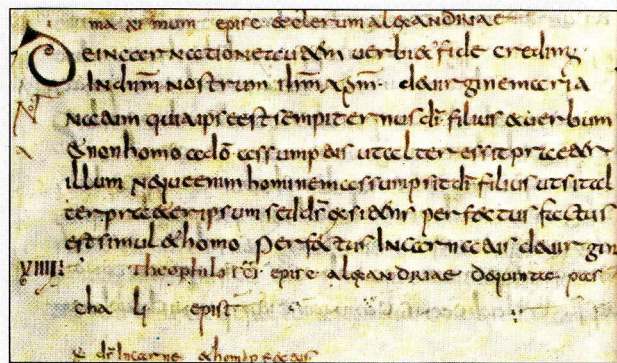 maximum episc et clerum alexandrinae
De incarnatione autem verbi et fide credim
In dnm nostrum ihm xpm de virgine maria
natum quia ipse est sempiternus di filius et verbum
et non homo a do assumptus ut alter essit praeter
illum Neque enim hominem assumpsit di filius ut sit al
ter praeter ipsum sed ds existens perfectus factus
est simul et homo Perfectus Incarnatus de virgin
XVIIII: Theophili sci episc alexandriae de quinta pas
cha li epist